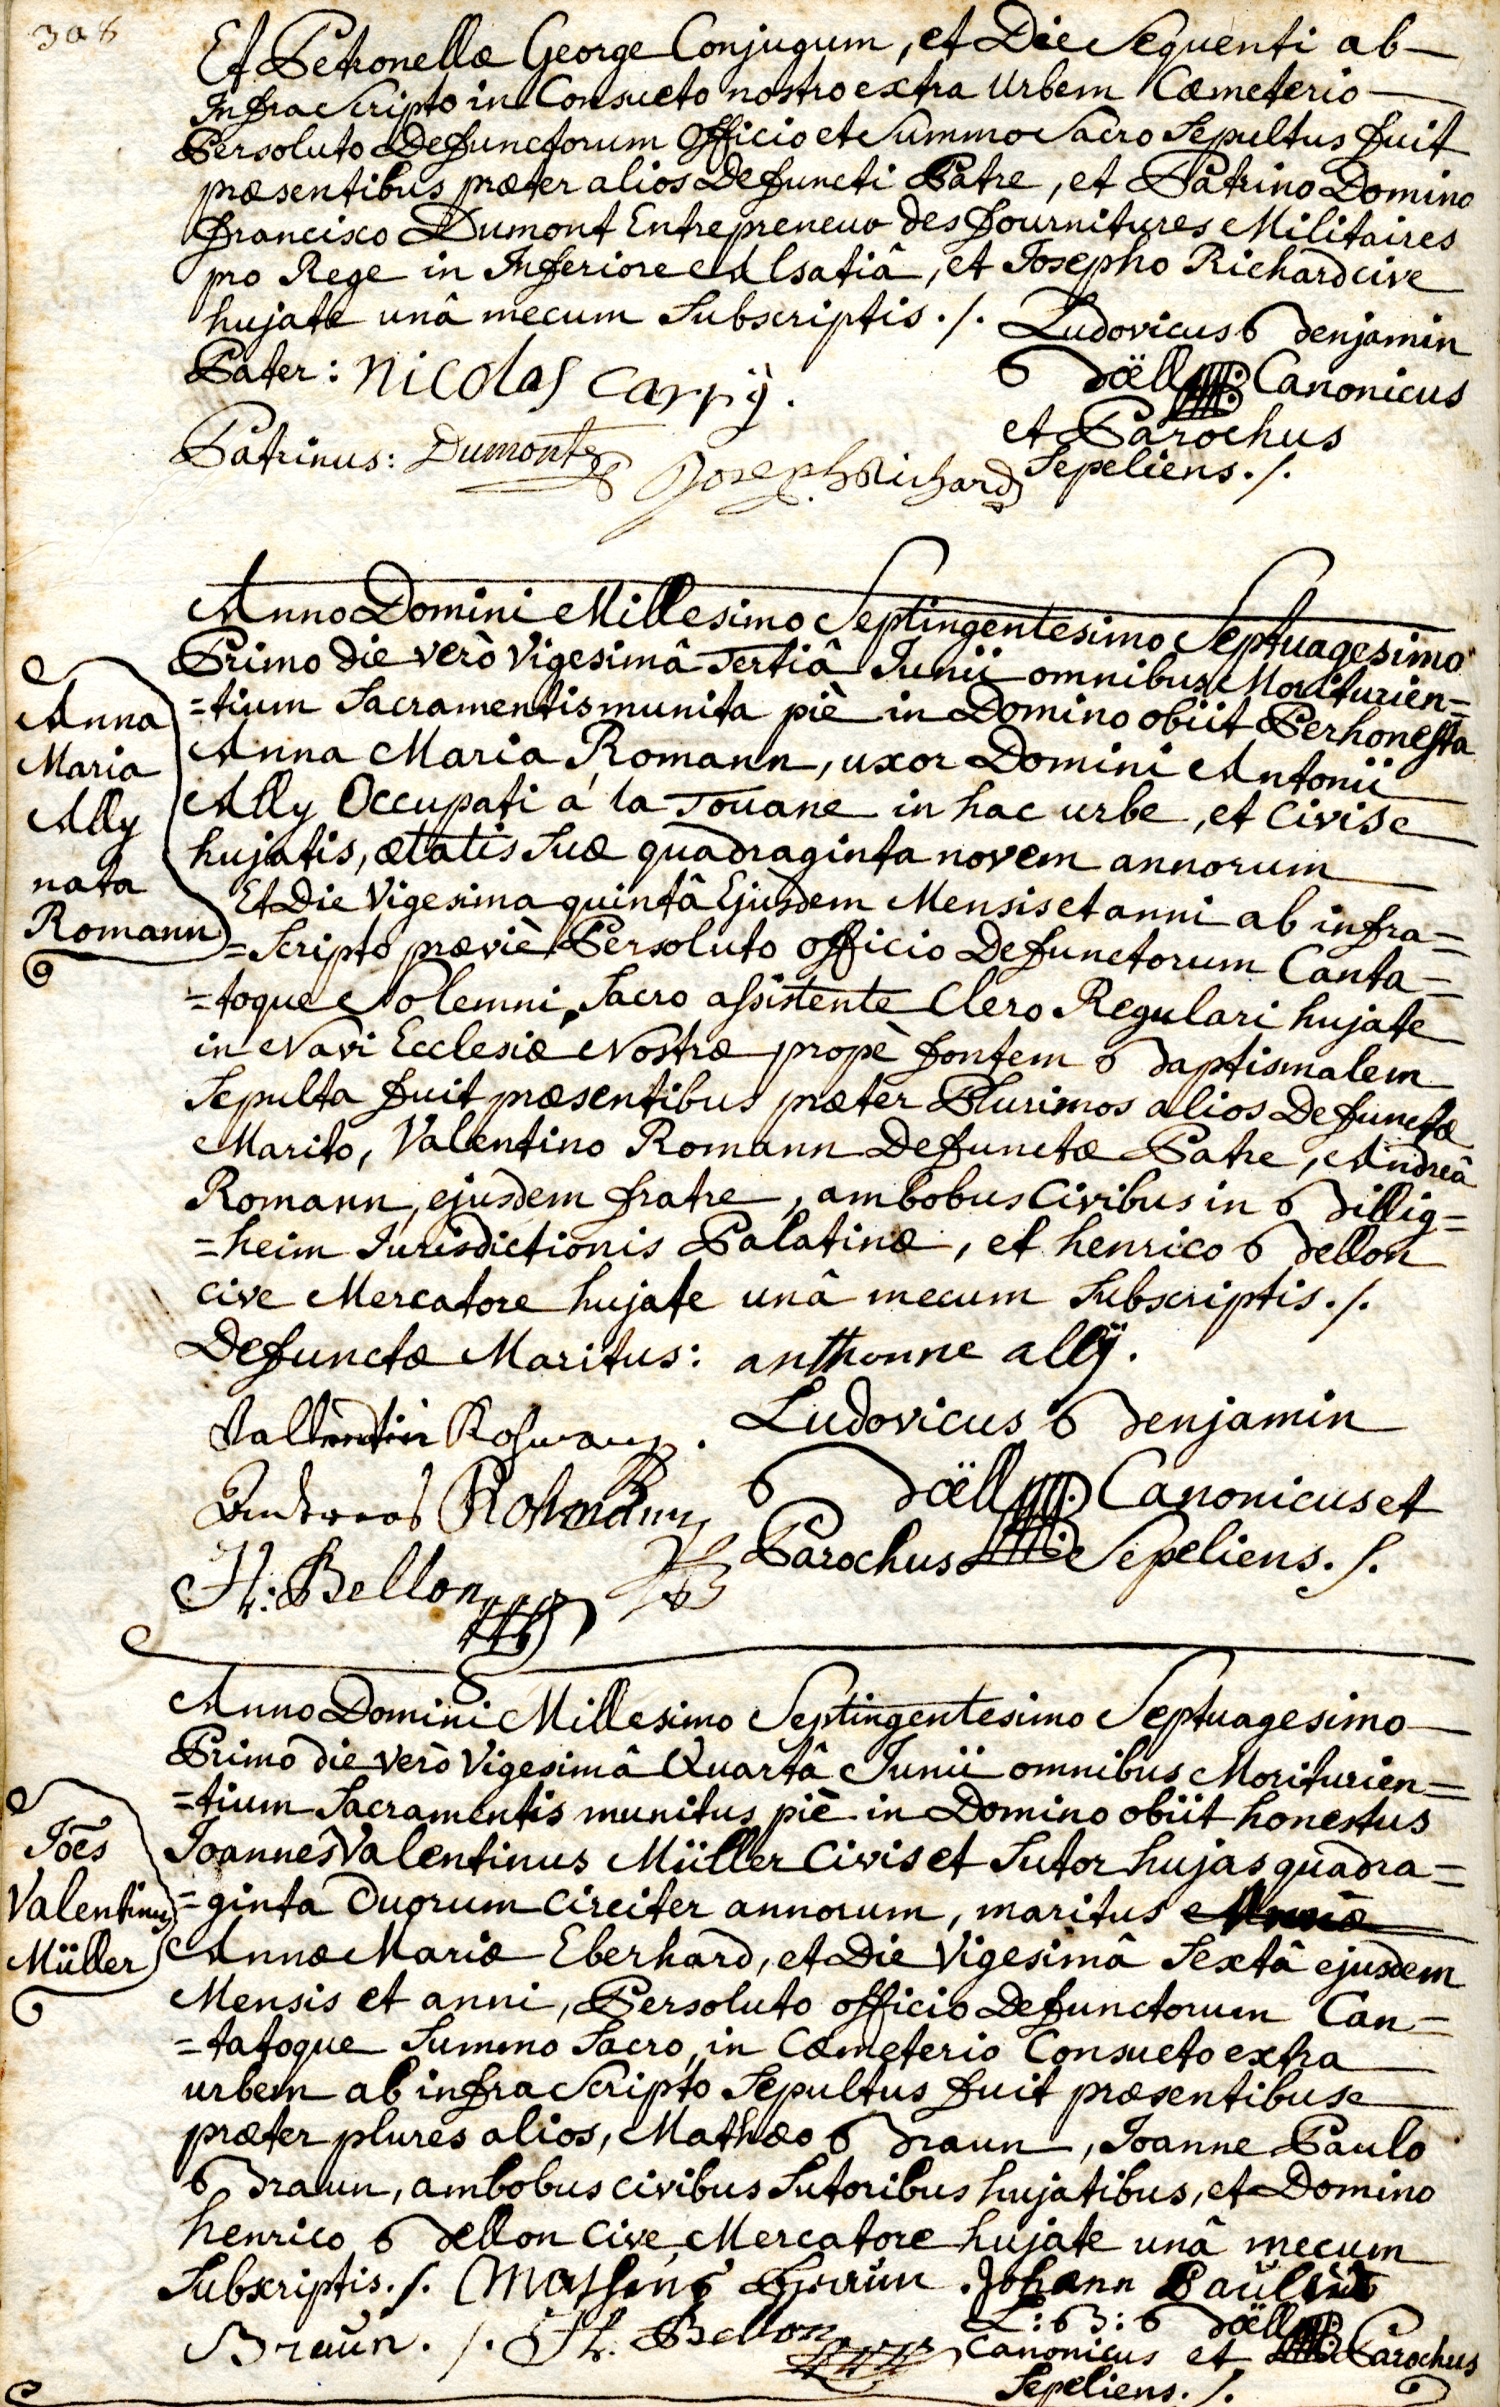 308
Et Petronellæ George Conjugum, et Die Sequenti ab
Infra Scripto in Consueto nostro extra Urbem Cæmeterio
Persoluto Defunctorum Officio et Summo Sacro Sepultus fuit
præsentibus præter alios Defuncti Patre, et Patrino Domino
francisco Dumont Entrepreneur des fournitures Militaires
pro Rege in Inferiore Alsatiâ, et Josepho Richard cive
hujate unâ mecum Subscriptis ./.
Ludovicus Benjamin
Böell Canonicus
et Parochus
Sepeliens ./.
Pater: Nicolas
Patrinus: Dumont
Joseph Richard
Anno Domini Millesimo Septingentesimo Septuagesimo
Primo die verò Vigesimâ Tertiâ Junii omnibus Moriturien=
=tium Sacramentis munita piè in Domino obiit Perhonesta
Anna Maria Romann, uxor Domini Antonii
Ally Occupati á la Touane in hac urbe, et Civis
hujatis, ætatis Suæ quadraginta novem annorum
Et Die Vigesima quintâ Ejusdem Mensis et anni ab infra=
=Scripto præviè Persoluto officio Defunctorum Canta=
=toque Solemni Sacro assistente Clero Regulari hujate
in Navi Ecclesiæ Nostræ propè fontem Baptismalem
Sepulta fuit præsentibus præter Plurimos alios Defunctæ
Marito, Valentino Romann Defunctæ Patre, Andreâ
Romann, ejusdem fratre, ambobus Civibus in Billig=
=heim Jurisdictionis Palatinæ, et henrico Bellon
cive Mercatore hujate unâ mecum Subscriptis ./.
Anna
Maria
Ally
nata
Romann
Defunctæ Maritus: anthonne allÿ.
Ludovicus Benjamin
Böell Canonicus et
Parochus Sepeliens ./.
Andreas Rohmann
H: Bellon
Anno Domini Millesimo Septingentesimo Septuagesimo
Primo die verò Vigesimâ Quartâ Junii omnibus Moriturien=
=tium Sacramentis munitus piè in Domino obiit honestus
Joannes Valentinus Müller Civis et Sutor hujas quadra=
=ginta Duorum circiter annorum, maritus
Annæ Mariæ Eberhard, et Die Vigesimâ Sextâ ejusdem
Mensis et anni, Persoluto officio Defunctorum Can=
=tatoque Summo Sacro, in Cæmeterio Consueto extra
urbem ab infra Scripto Sepultus fuit præsentibus
præter plures alios, Mathæo Braun, Joanne Paulo
Braun, ambobus civibus Sutoribus hujatibus, et Domino
henrico Bellon Cive Mercatore hujate unâ mecum
Subscriptis ./. Braun. Johann
Braun ./. H. Bellon
L: B: Böell
Canonicus et Parochus
Sepeliens ./.
Jões
Valentinus
Müller